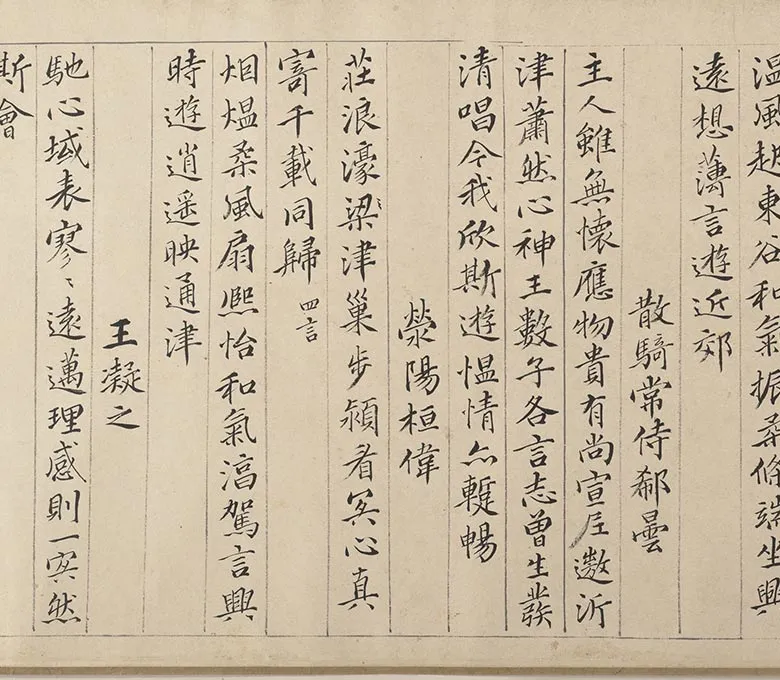 温風起東谷和氣振柔條端坐興
遠想薄言遊近郊
散騎常侍郗曇
主人雖無懷應物貴有尚宣尼遨沂
津蕭然心神王數子各言志曾生發
清唱今我欣斯遊愠情亦蹔暢
滎陽桓偉
莊浪濠梁津巢步潁眉冥心真
寄千載同歸 四言
烟煴柔風扇熙怡和氣淳駕言興
時遊逍遥映通津
王凝之
馳心域表寥〻遠邁理感則一冥然
斯會